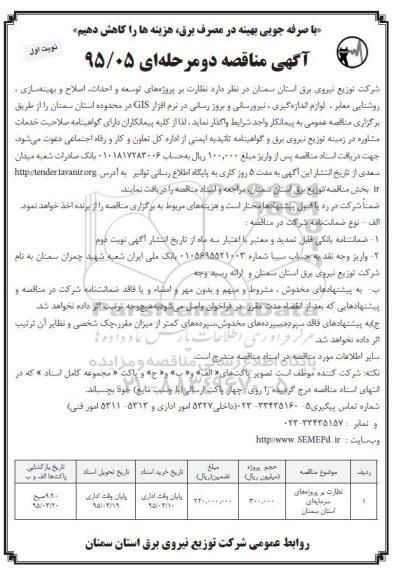 «با صرفه جویی بهینه در مصرف برق، هزینه ها را کاهش دهیم»
نوبت اول
آگهی مناقصه دومرحله‌ای ۹۵/۰۵
شرکت توزیع نیروی برق استان سمنان در نظر دارد نظارت بر پروژه‌های توسعه و احداث، اصلاح و بهینه‌سازی ،
روشنایی معابر ، لوازم اندازه‌گیری ، نیرورسانی و بروز رسانی در نرم افزار GIS در محدوده استان سمنان را از طریق
برگزاری مناقصه عمومی به پیمانکار واجد شرایط واگذار نماید ، لذا از کلیه پیمانکاران دارای گواهینامه صلاحیت خدمات
مشاوره در زمینه توزیع نیروی برق و گواهینامه تائیدیه ایمنی از اداره کل تعاون و کار و رفاه اجتماعی دعوت می‌شود،
جهت دریافت اسناد مناقصه پس از واریز مبلغ ۱۰۰,۰۰۰ ریال به‌حساب ۰۱۰۱۸۱۷۲۸۳۰۰۶ بانک صادرات شعبه میدان
سعدی از تاریخ انتشار این آگهی به مدت ۵ روز کاری به پایگاه اطلاع رسانی توانیر به آدرس http://tender.tavanir.org.
ir بخش مناقصه/توزیع برق استان سمنان، مراجعه و اسناد مناقصه را دریافت نمایند.
ضمناً شرکت در رد یا قبول پیشنهادها مختار است و هزینه‌های مربوط به برگزاری مناقصه را از برنده اخذ خواهد نمود.
الف – نوع ضمانت‌نامه شرکت در مناقصه :
۱- ضمانتنامه بانکی قابل تمدید و معتبر با اعتبار سه ماه از تاریخ انتشار آگهی نوبت دوم
۲- واریز وجه نقد به حساب سیبا شماره ۰۱۰۵۶۹۵۵۲۱۰۰۳ بانک ملی ایران شعبه شهید چمران سمنان به نام
شرکت توزیع نیروی برق استان سمنان و ارائه رسید وجه
ب- به پیشنهادهای مخدوش ، مشروط و مبهم و بدون مهر و امضاء و یا فاقد ضمانت‌نامه شرکت در مناقصه و
پیشنهادهایی که بعد از انقضاء مدت مقرر در فراخوان واصل می‌شود به‌هیچ‌وجه ترتیب اثر داده نخواهد شد.
ج)به پیشنهادهای فاقد سپرده،سپرده‌های مخدوش،سپرده‌های کمتر از میزان مقرر،چک شخصی و نظایر آن ترتیب
اثر داده نخواهد شد.
سایر اطلاعات مورد مناقصه در اسناد مناقصه مندرج است.
نکته: شرکت کننده موظف است تصویر پاکت‌های « الف» و« ب» و« ج» و پاکت « مجموعه کامل اسناد » که در
انتهای اسناد مناقصه درج گردیده را روی چهار پاکت ارسالی(با چسب مایع) خود بچسباند.
شماره تماس پیگیری۵- ۳۳۴۳۵۱۶۰-۰۲۳(داخلی۵۳۲۷ امور اداری و ۵۳۱۳- ۵۳۱۱ امور فنی)
و نمابر : ۳۳۴۳۵۱۵۷-۰۲۳
وب‌سایت : http://www. SEMEPd. ir
ردیف موضوع مناقصه حجم پروژه (میلیون ریال) مبلغ تضمین(ریال) تاریخ خرید اسناد تاریخ تحویل اسناد تاریخ بازگشایی پاکت‌ها الف و ب
۱ نظارت بر پروژه‌های سرمایه‌ای استان سمنان ۳۰۰,۰۰۰ ۲۲۰,۰۰۰,۰۰۰ پایان وقت اداری ۹۵/۰۳/۱۰ پایان وقت اداری ۹۵/۰۳/۱۹ ۹:۳۰صبح ۹۵/۰۳/۲۰
روابط عمومی شرکت توزیع نیروی برق استان سمنان